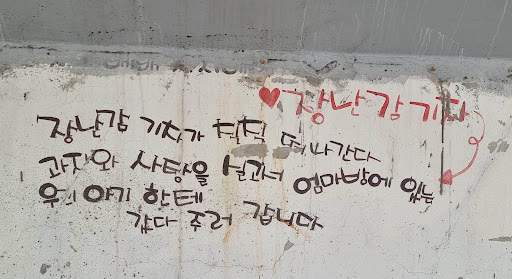 ♥장난감기차
장난감 기차가 칙칙 떠나간다
과자와 사탕을 싣고서 엄마방에 있는
우리 아기 한테
갖다 주러 갑니다